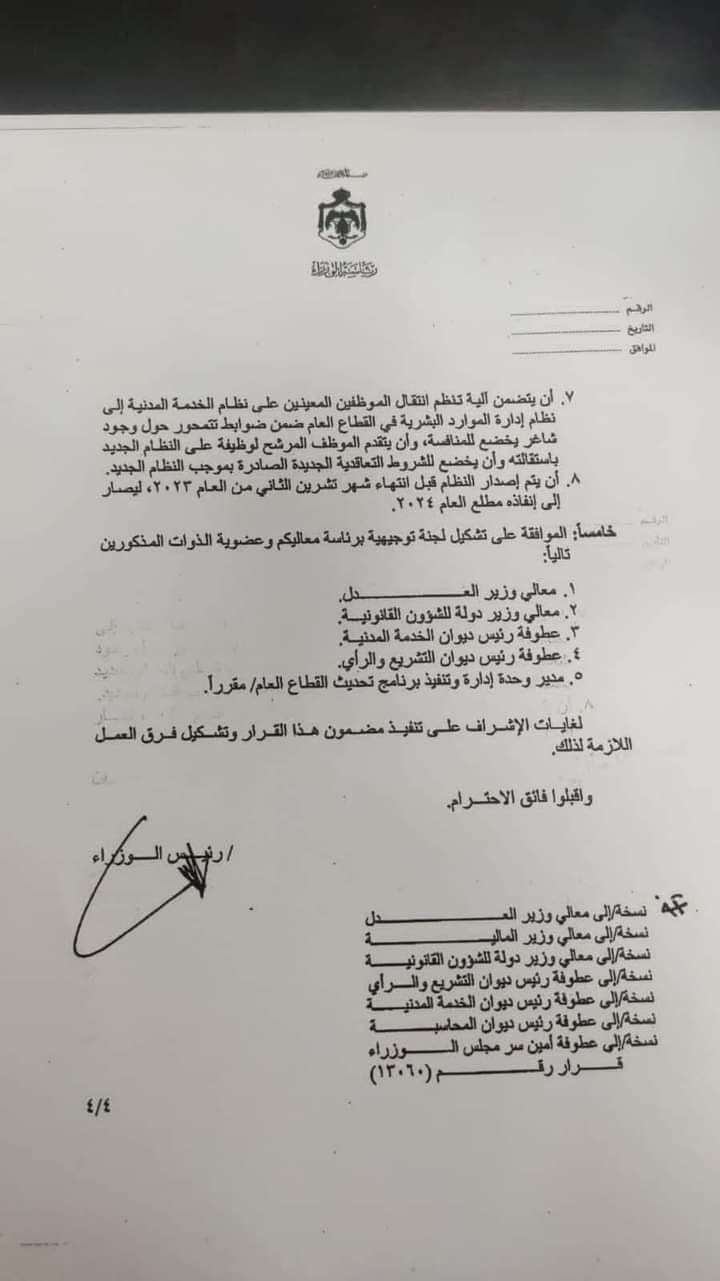 رئاسة الوزراء
الرقم
التاريخ
الموافق
٧. أن يتضمن آلية تنظم انتقال الموظفين المعينين على نظام الخدمة المدنية إلى
نظام إدارة الموارد البشرية في القطاع العام ضمن ضوابط تتمحور حول وجود
شاغر يخضع للمنافسة، وأن يتقدم الموظف المرشح لوظيفة على النظام الجديد
باستقالته وأن يخضع للشروط التعاقدية الجديدة الصادرة بموجب النظام الجديد.
٨. أن يتم إصدار النظام قبل انتهاء شهر تشرين الثاني من العام ٢٠٢٣، ليصار
إلى إنفاذه مطلع العام ٢٠٢٤.
خامساً: الموافقة على تشكيل لجنة توجيهية برئاسة معاليكم وعضوية الذوات المذكورين
تالياً:
١. معالي وزير العـــــــــدل.
٢. معالي وزير دولة للشؤون القانونيـــة.
٣. عطوفة رئيس ديوان الخدمة المدنية.
٤. عطوفة رئيس ديوان التشريع والرأي.
٥. مدير وحدة إدارة وتنفيذ برنامج تحديث القطاع العام/ مقرراً.
لغايـات الإشراف علـى تنفيذ مضمون هذا القرار وتشكيل فـرق العمـل
اللازمة لذلك.
واقبلوا فائق الاحتـــرام.
/ رئيـــس الـــوزراء
نسخة/إلى معالي وزير العـــــــــدل
نسخة/إلى معالي وزير الماليـــــــة
نسخة/إلى معالي وزير دولة للشؤون القانونيـــة
نسخة/إلى عطوفة رئيس ديوان التشريع والـــرأي
نسخة/إلى عطوفة رئيس ديوان الخدمة المدنيـــة
نسخة/إلى عطوفة رئيس ديوان المحاسبـــــة
نسخة/إلى عطوفة أمين سر مجلس الـــــوزراء
قـــــرار رقـــــــم (١٣٠٦٠)
٤/٤